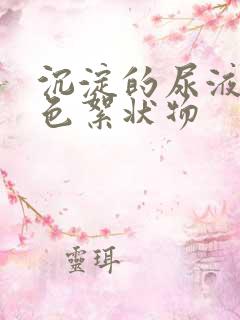 沉淀的尿液
色絮状物
靈珥